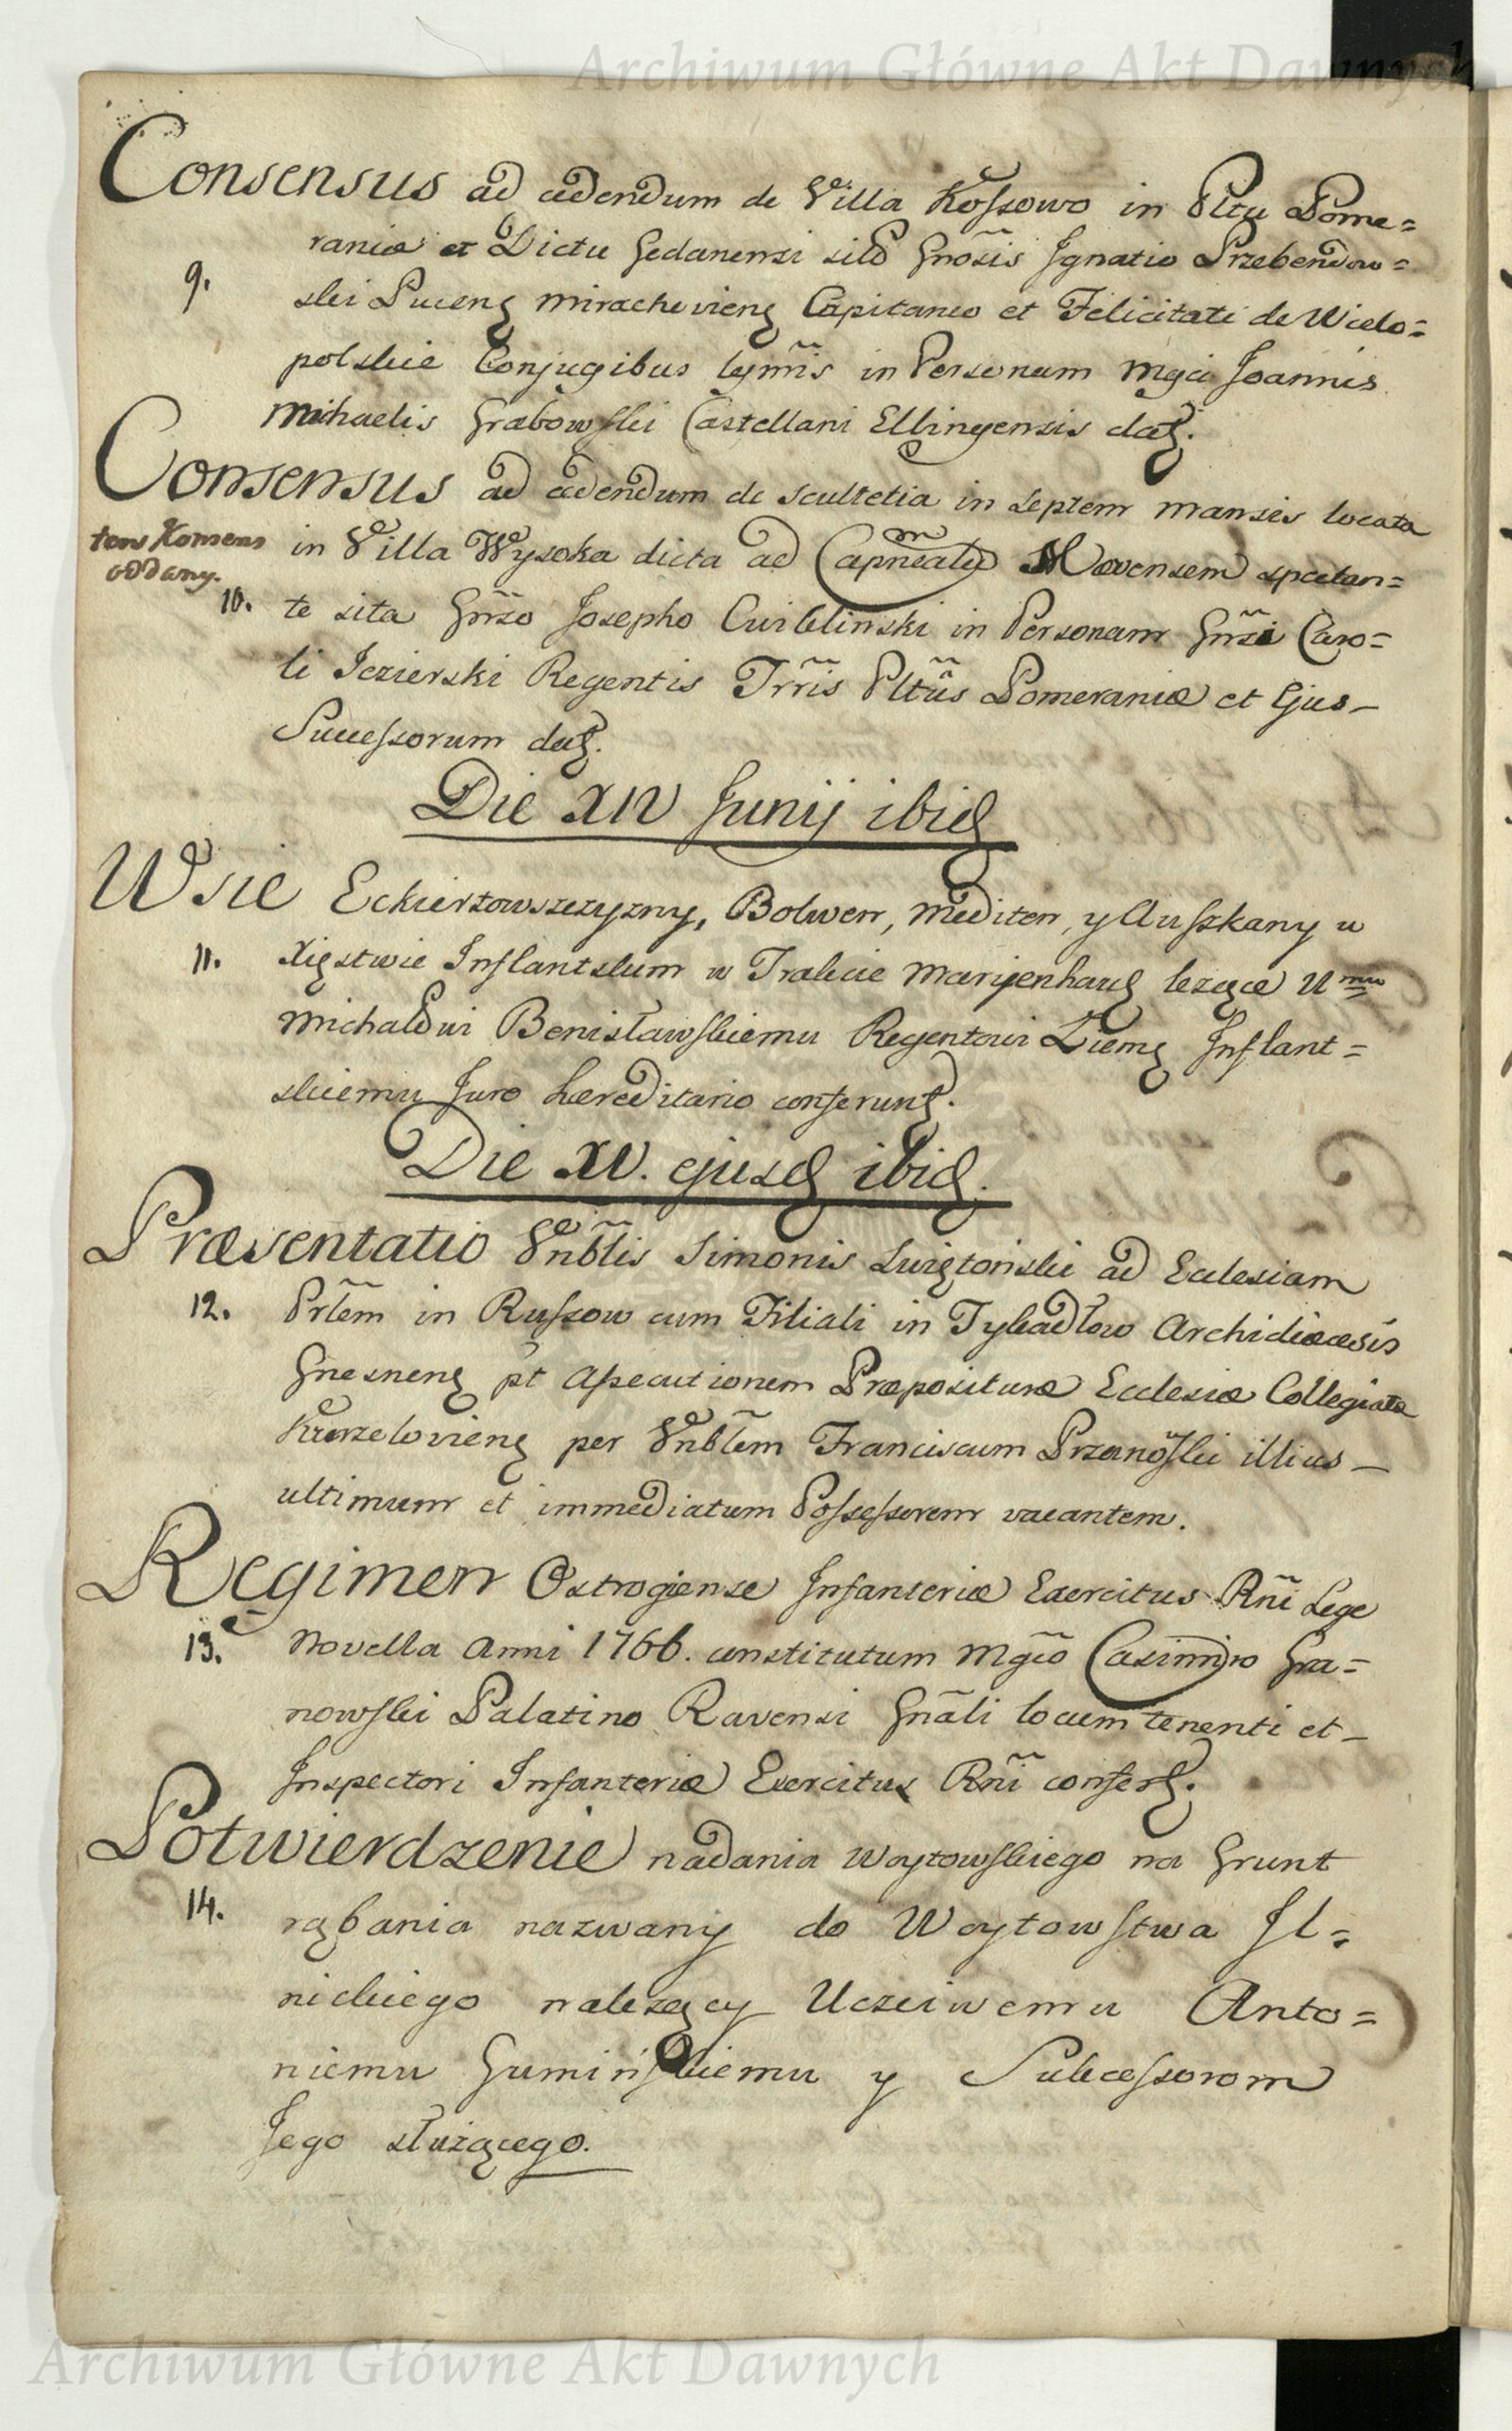 Archiwum Główne Akt Dawnych
Consensus ad cedendum de Villa Kossowo in Pltu Pome=
raniæ et Dictu Gedanensi sitis Gnosis Ignatio Przebendow=
9. ski Pucens Mirachoviens Capitaneo et Felicitati de Wielo=
polskie Conjugibus lgmis in Personam Mgci Joannis
Michaelis Grabowski Castellani Elbingensis datg.
Consensus ad cedendum de scultetia in septem mansis locata
ten Komens in Villa Wysoka dicta ad Capnealem Mevensem spectan=
oddany.
10. te sita Gnrso Josepho Cwiklinski in Personam Gnrsi Caro=
li Jezierski Regentis Trris Pltus Pomeraniæ et Ejus
Successorum datg.
Die XIV Junij ibid
Wsie Eckiertowszczyzny, Bolwen, Mediten, y Auszkany w
11. Xięstwie Inflantskim w Trakcie Maryenhaus leżące Urmu
Michałowi Benisławskiemu Regentowi Ziems Inflant=
skiemu Jure hæreditario conferuns.
Die XV. ejusd ibid.
Præsentatio Vnblis Simonis Swiętoński ad Ecclesiam
12. Prlem in Russow cum Filiali in Tykadłow Archidiæcesis
Gnesnens pt Assecutionem Præpositure Ecclesiæ Collegiatæ
Kurzeloviens per Vnblem Franciscum Przanoski illius
ultimum et immediatum Possessorem vacantem.
Regimen Ostrogiense Infanteriæ Exercitus Rni Lege
13. Novella Anni 1766. constitutum Mgco Casimiro Gra=
nowski Palatino Ravensi Gnali locum tenenti et
Inspectori Infanteriæ Exercitus Rni confert.
Potwierdzenie nadania Woytowskiego na Grunt
14. rąbania nazwany do Woytowstwa Il=
nickiego należący Uczciwemu Anto=
niemu Gumińskiemu y Sukcessorom
Jego służącego.
Archiwum Główne Akt Dawnych